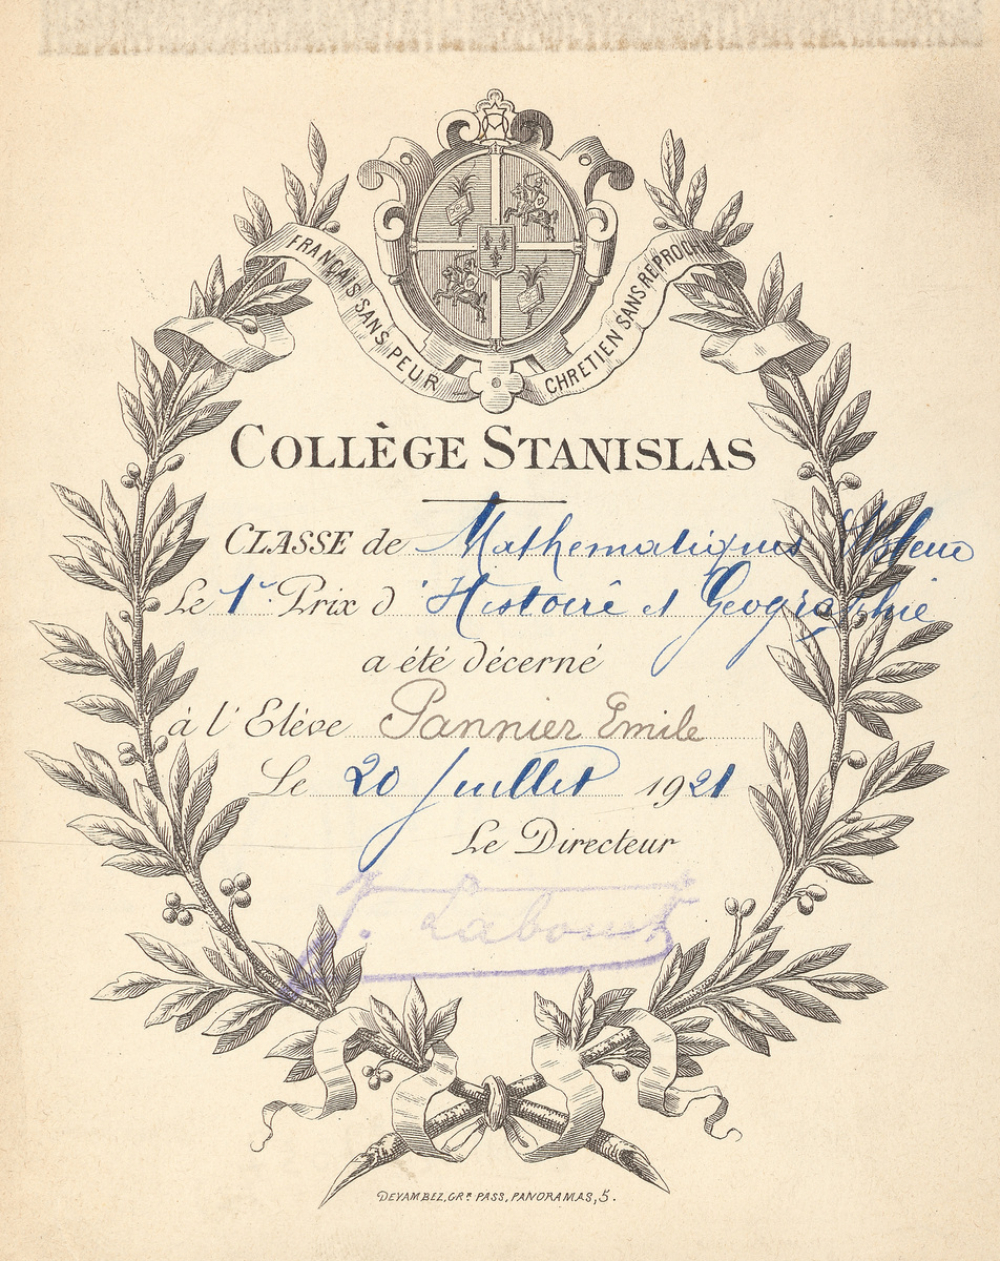 FRANÇAIS SANS PEUR
CHRETIEN SANS REPROCHE
COLLÈGE STANISLAS
CLASSE de Mathematiques
Le 1er Prix d'Histoire et Geographie
a été décerné
à l'Elève Pannier Emile
Le 20 Juillet 1921
Le Directeur
DEVAMBEZ, GR. PASS, PANORAMAS, 5.